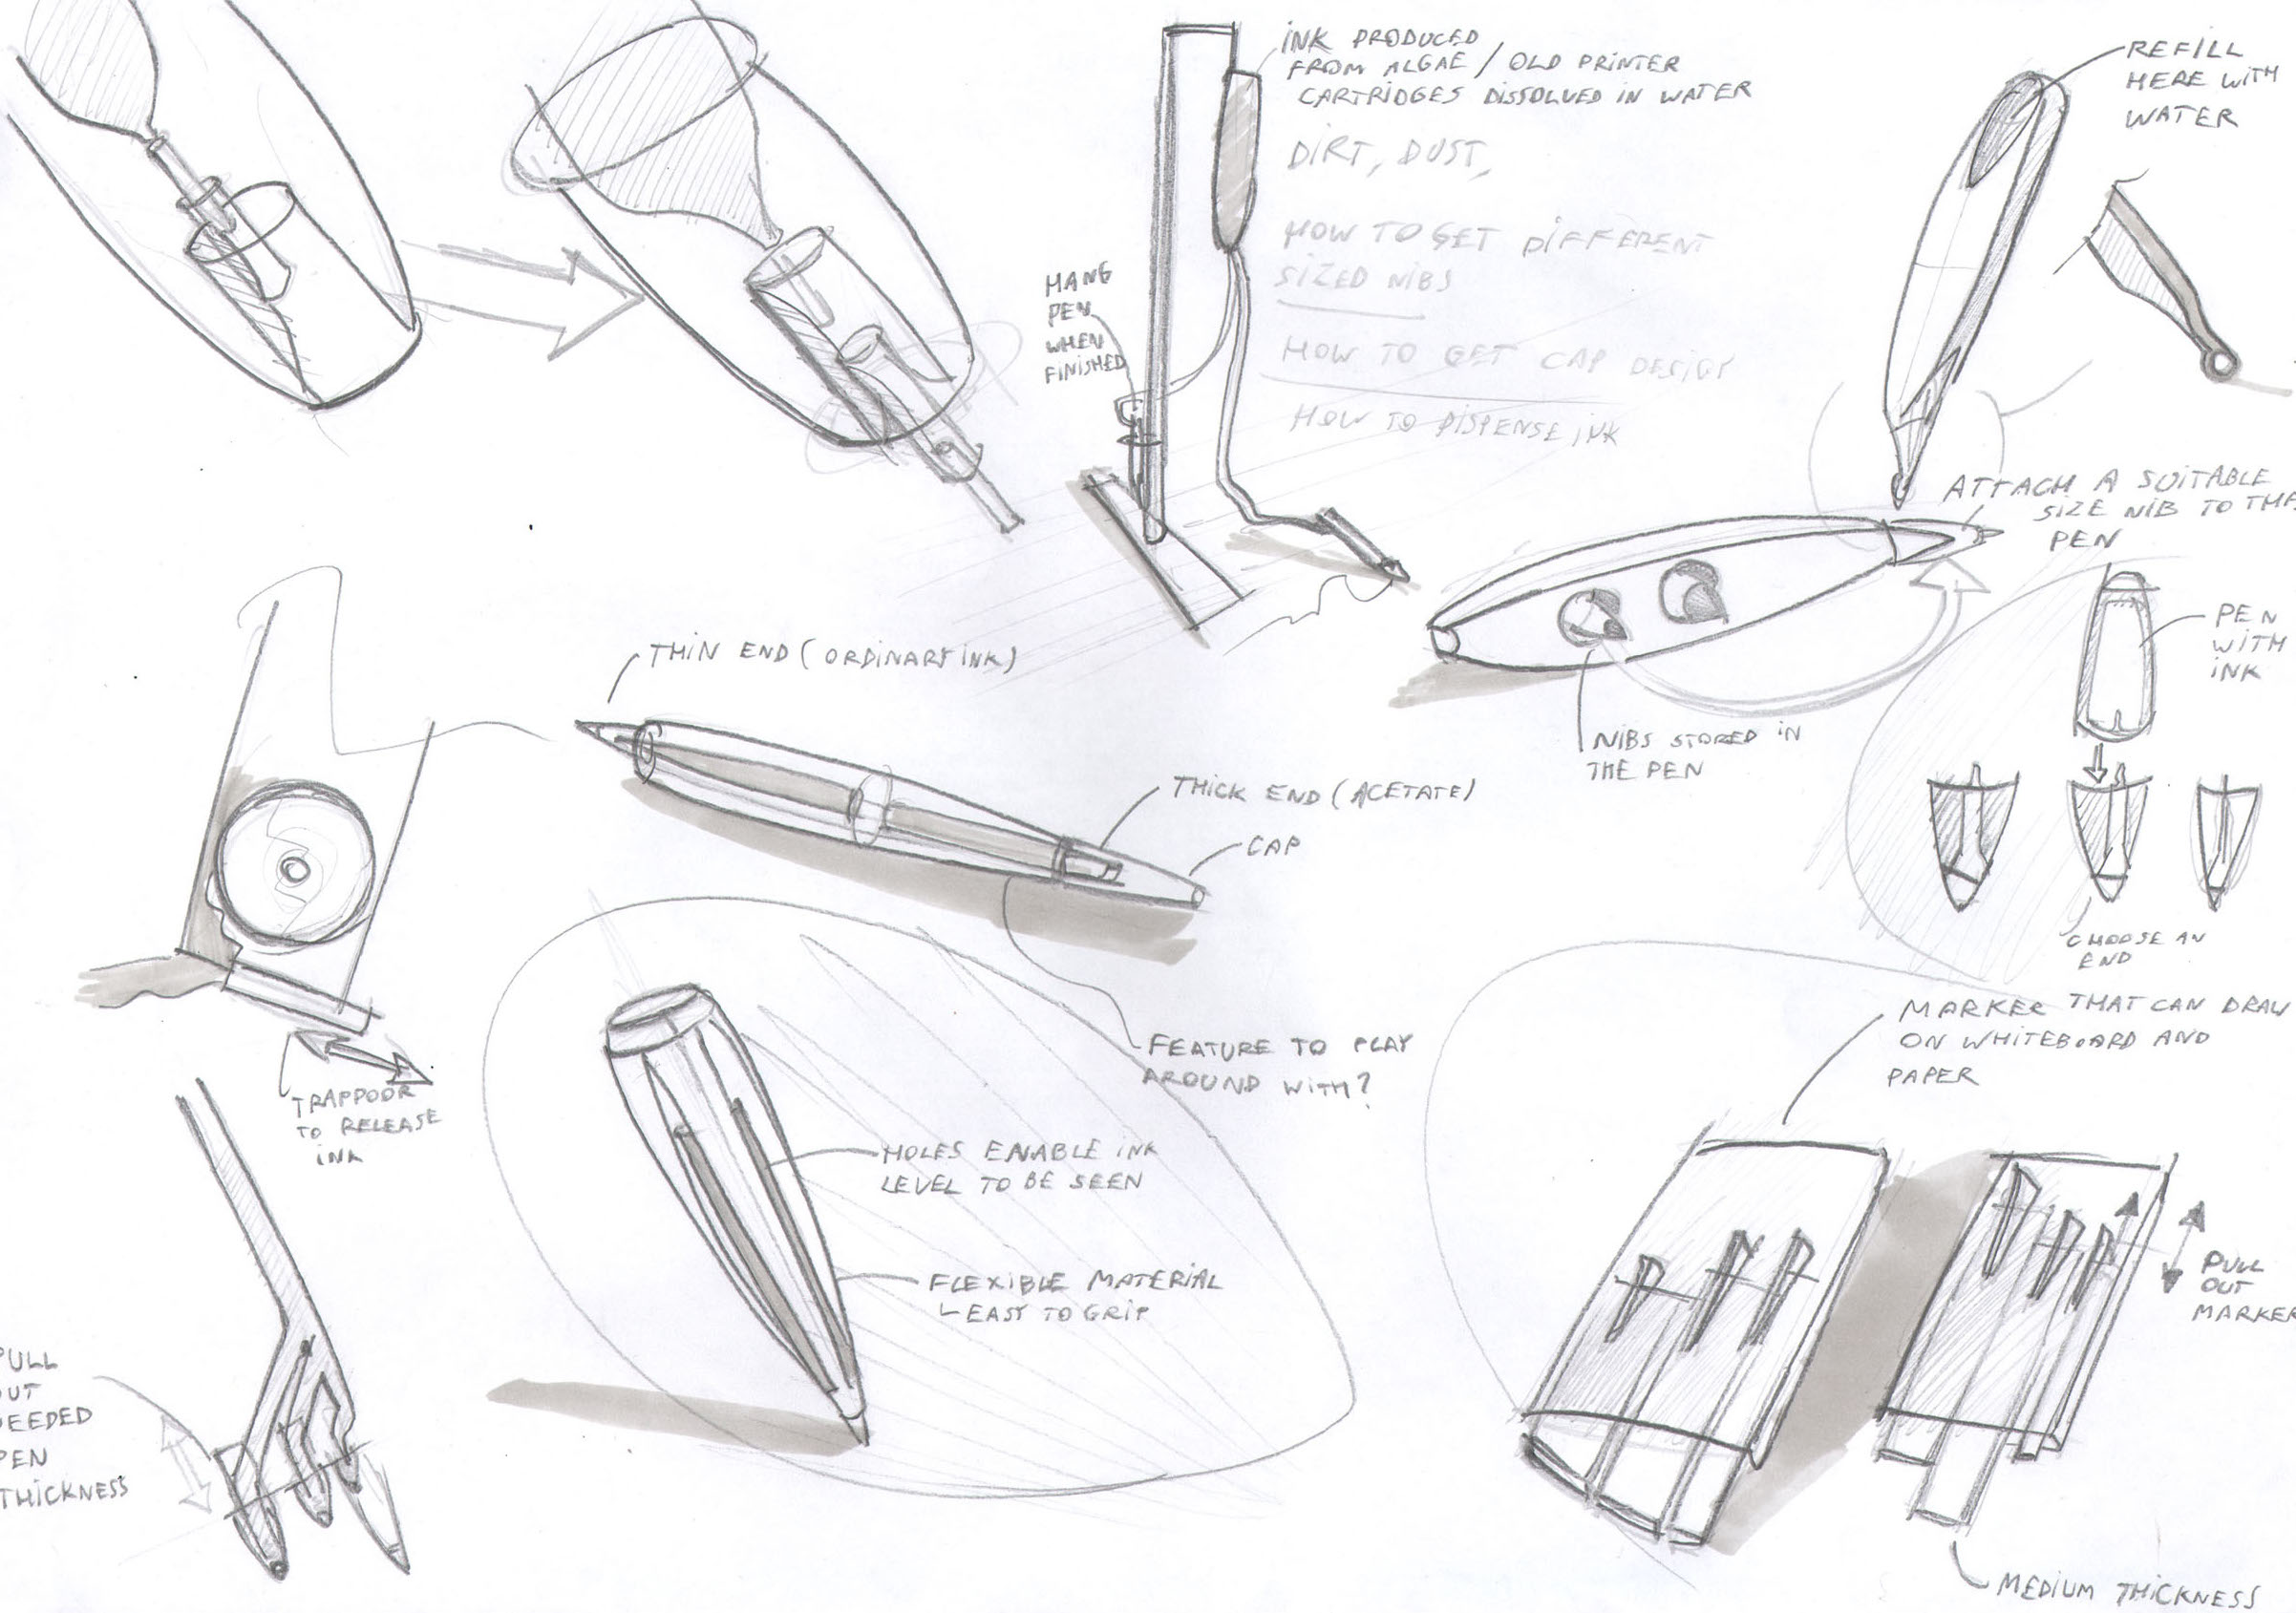 INK PRODUCED
FROM ALGAE / OLD PRINTER
CARTRIDGES DISSOLVED IN WATER
DIRT, DUST,
HOW TO GET DIFFERENT
SIZED NIBS
HOW TO GET CAP DESIGN
HOW TO DISPENSE INK
HANG
PEN
WHEN
FINISHED
REFILL
HERE WITH
WATER
ATTACH A SUITABLE
SIZE NIB TO THE
PEN
NIBS STORED IN
THE PEN
PEN
WITH
INK
CHOOSE AN
END
THIN END (ORDINARY INK)
THICK END (ACETATE)
CAP
FEATURE TO PLAY
AROUND WITH?
TRAPDOOR
TO RELEASE
INK
HOLES ENABLE INK
LEVEL TO BE SEEN
FLEXIBLE MATERIAL
EASY TO GRIP
PULL
OUT
NEEDED
PEN
THICKNESS
MARKER THAT CAN DRAW
ON WHITEBOARD AND
PAPER
PULL
OUT
MARKER
MEDIUM THICKNESS